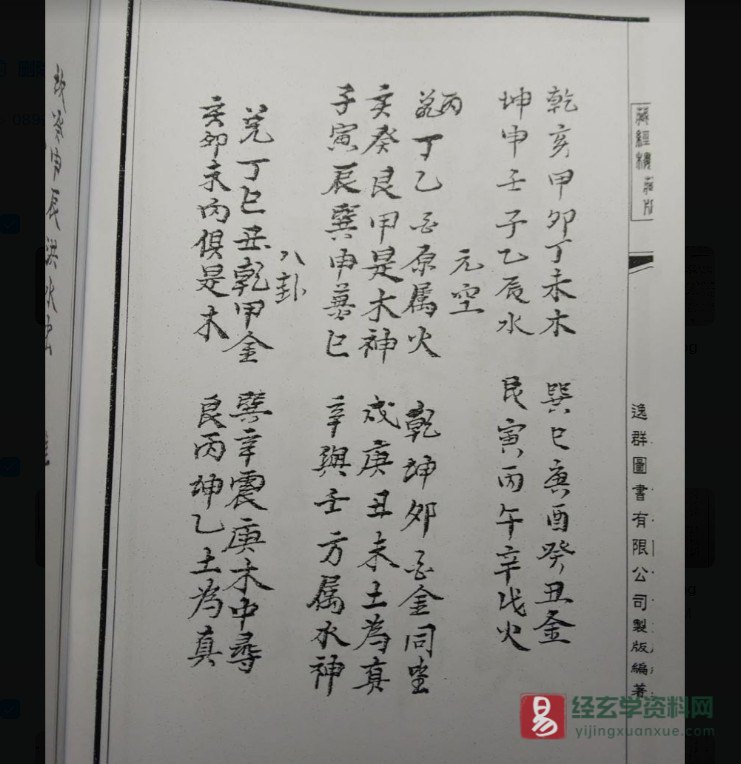 藏經樓藏版
逸群圖書有限公司製版編著
乾亥甲卯丁未木　巽巳庚酉癸丑金
坤申壬子乙辰水　艮寅丙午辛戌火
元空
丙
兌丁乙原属火　乾坤卯金同坐
亥癸艮甲是木神　戌庚丑未土為真
子寅辰巽申巳　辛與壬方属水神
八卦
兌丁巳丑乾甲金　巽辛震庚木中尋
亥卯未丙俱是木　艮丙坤乙土為真
癸申辰洪水
易
经玄学资料网
yijingxuanxue.com